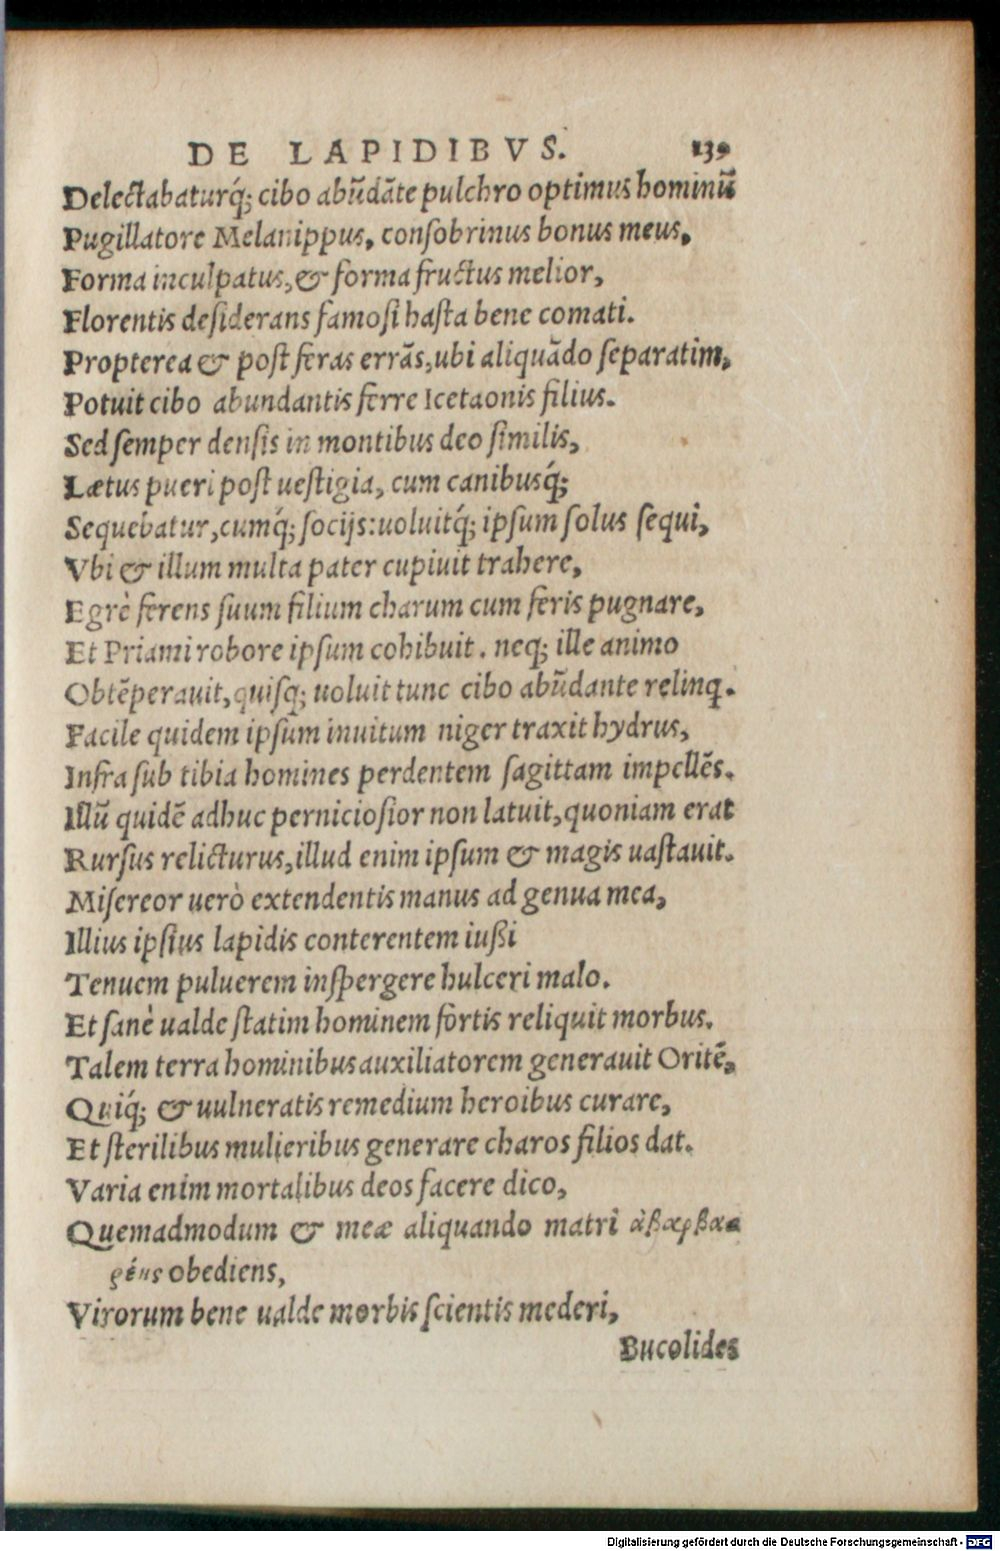 DE LAPIDIBVS. 139
Delectabaturq́; cibo abũdãte pulchro optimus hominũ
Pugillatore Melanippus, consobrinus bonus meus,
Forma inculpatus, & forma fructus melior,
Florentis desiderans famosi hasta bene comati.
Propterea & post feras errãs, ubi aliquãdo separatim,
Potuit cibo abundantis ferre Icetaonis filius.
Sed semper densis in montibus deo similis,
Lætus pueri post uestigia, cum canibusq́;
Sequebatur, cumq́; socijs: uoluitq́; ipsum solus sequi,
Vbi & illum multa pater cupiuit trahere,
Egrè ferens suum filium charum cum feris pugnare,
Et Priami robore ipsum cohibuit. neq; ille animo
Obtẽperauit, quisq; uoluit tunc cibo abũdante relinq.
Facile quidem ipsum inuitum niger traxit hydrus,
Infra sub tibia homines perdentem sagittam impellẽs.
Illũ quidẽ adhuc perniciosior non latuit, quoniam erat
Rursus relicturus, illud enim ipsum & magis uastauit.
Misereor uerò extendentis manus ad genua mea,
Illius ipsius lapidis conterentem iußi
Tenuem puluerem inspergere hulceri malo.
Et sanè ualde statim hominem fortis reliquit morbus.
Talem terra hominibus auxiliatorem generauit Oritẽ,
Quiq́; & uulneratis remedium heroibus curare,
Et sterilibus mulieribus generare charos filios dat.
Varia enim mortalibus deos facere dico,
Quemadmodum & meæ aliquando matri ἀβαρβα
ρέης obediens,
Virorum bene ualde morbis scientis mederi,
Bucolides
Digitalisierung gefördert durch die Deutsche Forschungsgemeinschaft - DFG